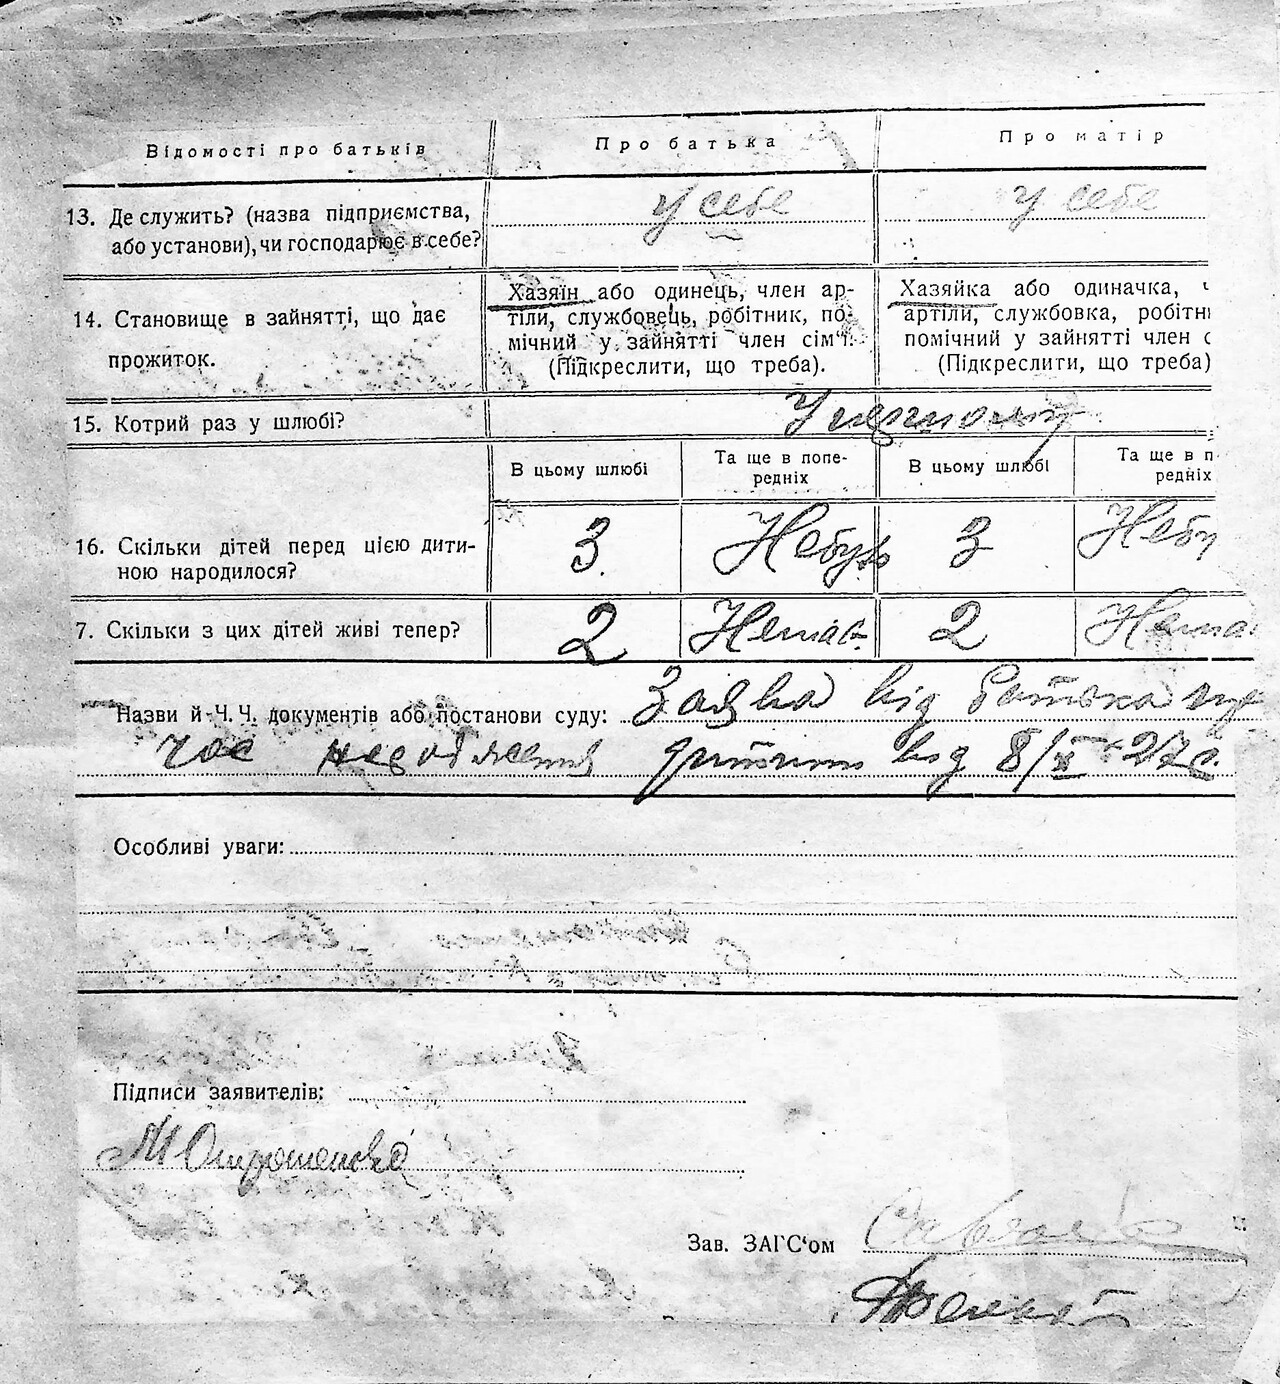 Відомості про батьків Про батька Про матір
13. Де служить? (назва підприємства, у себе у себе
або установи), чи господарює в себе?
14. Становище в зайнятті, що дає
прожиток.
Хазяїн або одинець, член ар-
тіли, службовець, робітник, по-
мічний у зайнятті член сім'ї.
(Підкреслити, що треба).
Хазяйка або одиначка, ч
артіли, службовка, робітн
помічний у зайнятті член с
(Підкреслити, що треба)
15. Котрий раз у шлюбі? У першому
В цьому шлюбі Та ще в попе-
редніх В цьому шлюбі Та ще в п
редніх
16. Скільки дітей перед цією дити-
ною народилося? 3 Небуло 3 Небу
7. Скільки з цих дітей живі тепер? 2 Немає 2 Немає
Назви й Ч. Ч. документів або постанови суду: Заява від батька
час дитини від 8/X 27 р.
Особливі уваги:
Підписи заявителів:
М Онупрієнко
Зав. ЗАГС'ом